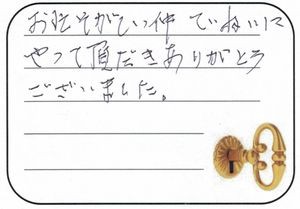 おいそがしい中 ていねいに
やって頂だきありがとう
ございました。